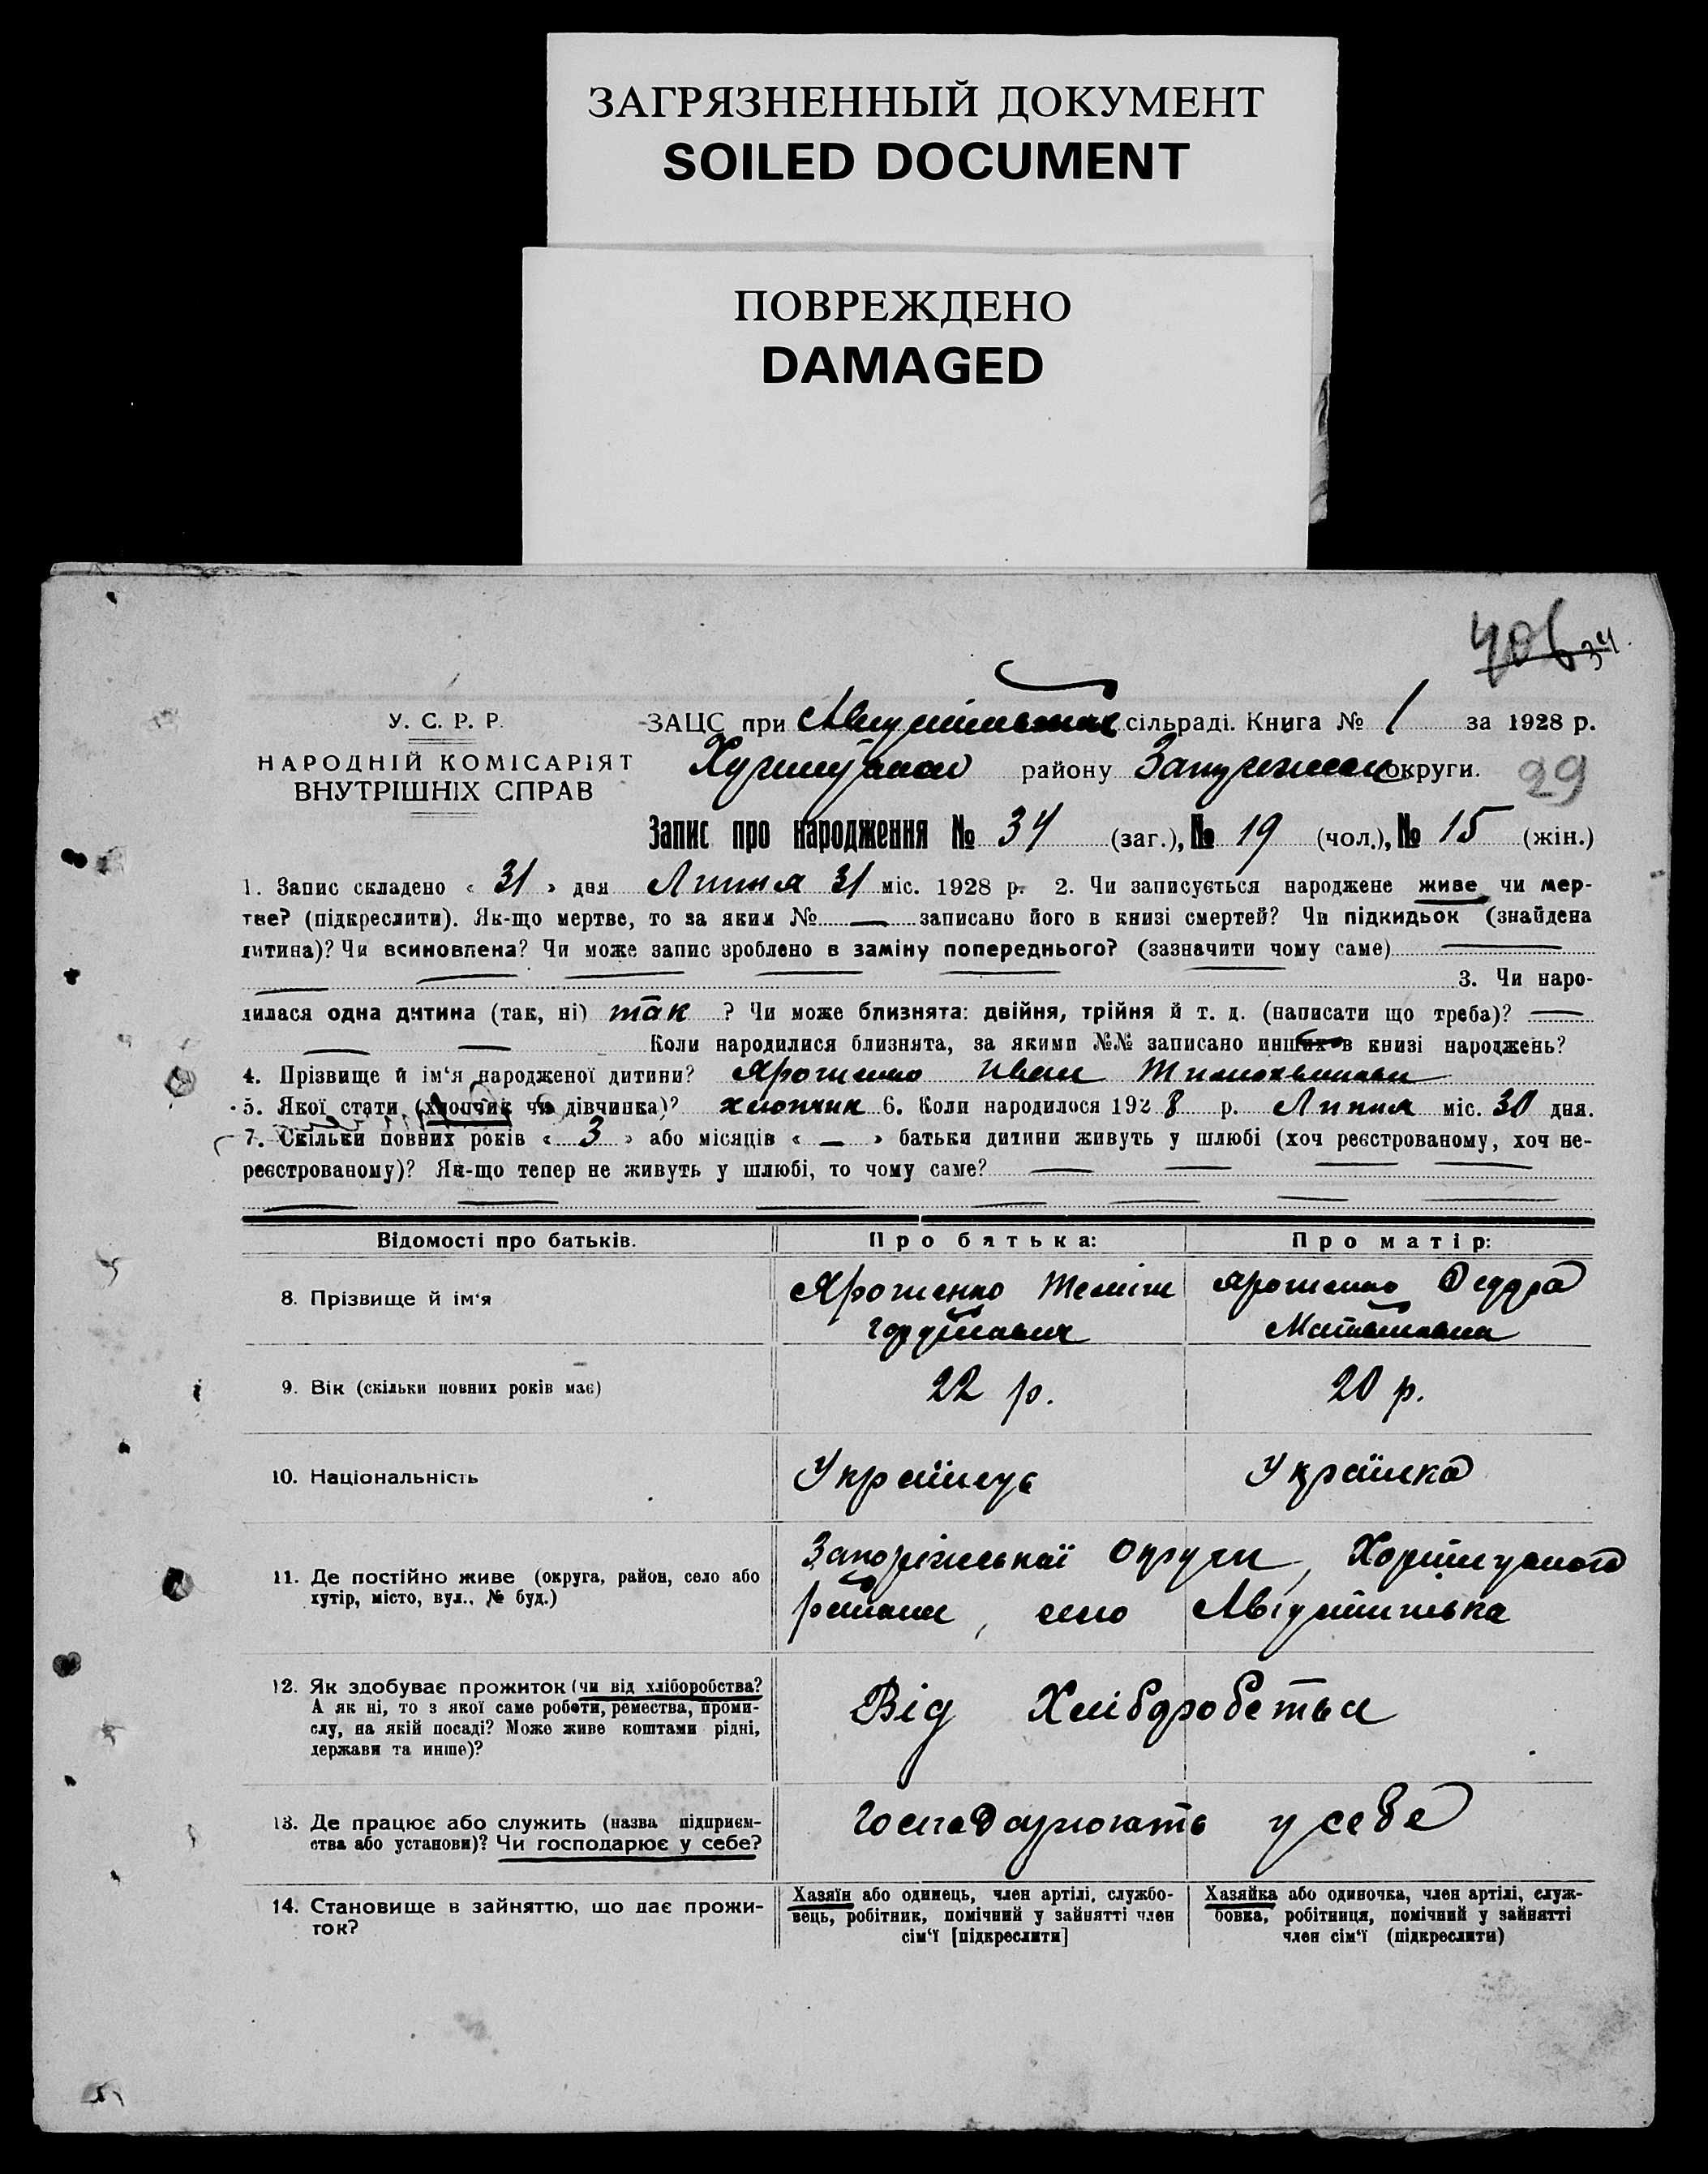 ЗАГРЯЗНЕННЫЙ ДОКУМЕНТ
SOILED DOCUMENT
ПОВРЕЖДЕНО
DAMAGED
34
У. С. Р. Р.
ЗАЦС при сільраді. Книга № 1 за 1928 р.
НАРОДНІЙ КОМІСАРІЯТ
ВНУТРІШНІХ СПРАВ
району округи.
29
Запис про народження № 34 (заг.), № 19 (чол.), № 15 (жін.)
1. Запис складено « 31 » дня Липня 31 міс. 1928 р. 2. Чи записується народжене живе чи мер-
тве? (підкреслити). Як-що мертве, то за яким № — записано його в книзі смертей? Чи підкидьок (знайдена
дитина)? Чи всиновлена? Чи може запис зроблено в заміну попереднього? (зазначити чому саме) —
3. Чи наро-
дилася одна дитина (так, ні) так ? Чи може близнята: двійня, трійня й т. д. (написати що треба)? —
— — Коли народилися близнята, за якими №№ записано инших в книзі народжень?
4. Прізвище й ім‘я народженої дитини? Ярошенко Иван
5. Якої стати (хлопчик чи дівчинка)? хлопчик 6. Коли народилося 1928 р. Липня міс. 30 дня.
7. Скільки повних років « 3 » або місяців « — » батьки дитини живуть у шлюбі (хоч реєстрованому, хоч не-
реєстрованому)? Як-що тепер не живуть у шлюбі, то чому саме? — — — —
Відомості про батьків.
Про батька:
Про матір:
8. Прізвище й ім‘я
Ярошенко
Ярошенко
9. Вік (скільки повних років має)
22 р.
20 р.
10. Національність
Українець
Українка
11. Де постійно живе (округа, район, село або
хутір, місто, вул., № буд.)
Запоріжської округи,
района, село
12. Як здобуває прожиток (чи від хліборобства?
А як ні, то з якої саме роботи, ремества, проми-
слу, на якій посаді? Може живе коштами рідні,
держави та инше)?
Від Хліборобства
13. Де працює або служить (назва підприєм-
ства або установи)? Чи господарює у себе?
Господарюють у себе
14. Становище в зайняттю, що дає прожи-
ток?
Хазяїн або одинець, член артілі, службо-
вець, робітник, помічний у зайнятті член
сім‘ї [підкреслити]
Хазяйка або одиночка, член артілі, служ-
бовка, робітниця, помічний у зайнятті
член сім‘ї (підкреслити)